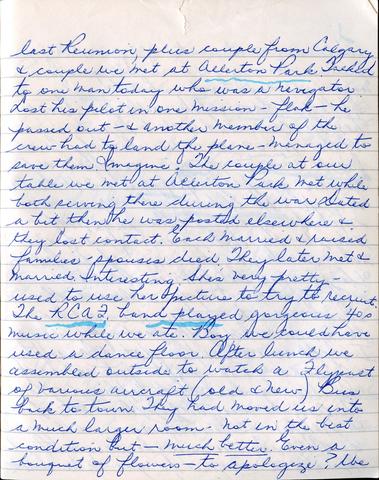 last Reunion, plus couple from Calgary
& couple we met at Allerton Park. Talked
to one man today who was a navigator.
Lost his pilot in one mission - flak - he
passed out - & another member of the
crew had to land the plane - managed to
save them. Imagine! The couple at our
table we met at Allerton Park met while
both serving there during the war. Dated
a bit then he was posted elsewhere &
they lost contact. Each married & raised
families - spouses died. They later met &
married. Interesting. She's very pretty -
used to use her picture to try to recruit.
The RCAF band played gorgeous 40s
music while we ate. Boy, we could have
used a dance floor. After lunch we
assembled outside to watch a Flypast
of various aircraft (old & new). Bus
back to town. They had moved us into
a much larger room - not in the best
condition but - much better. Even a
bouquet of flowers - to apologize? We